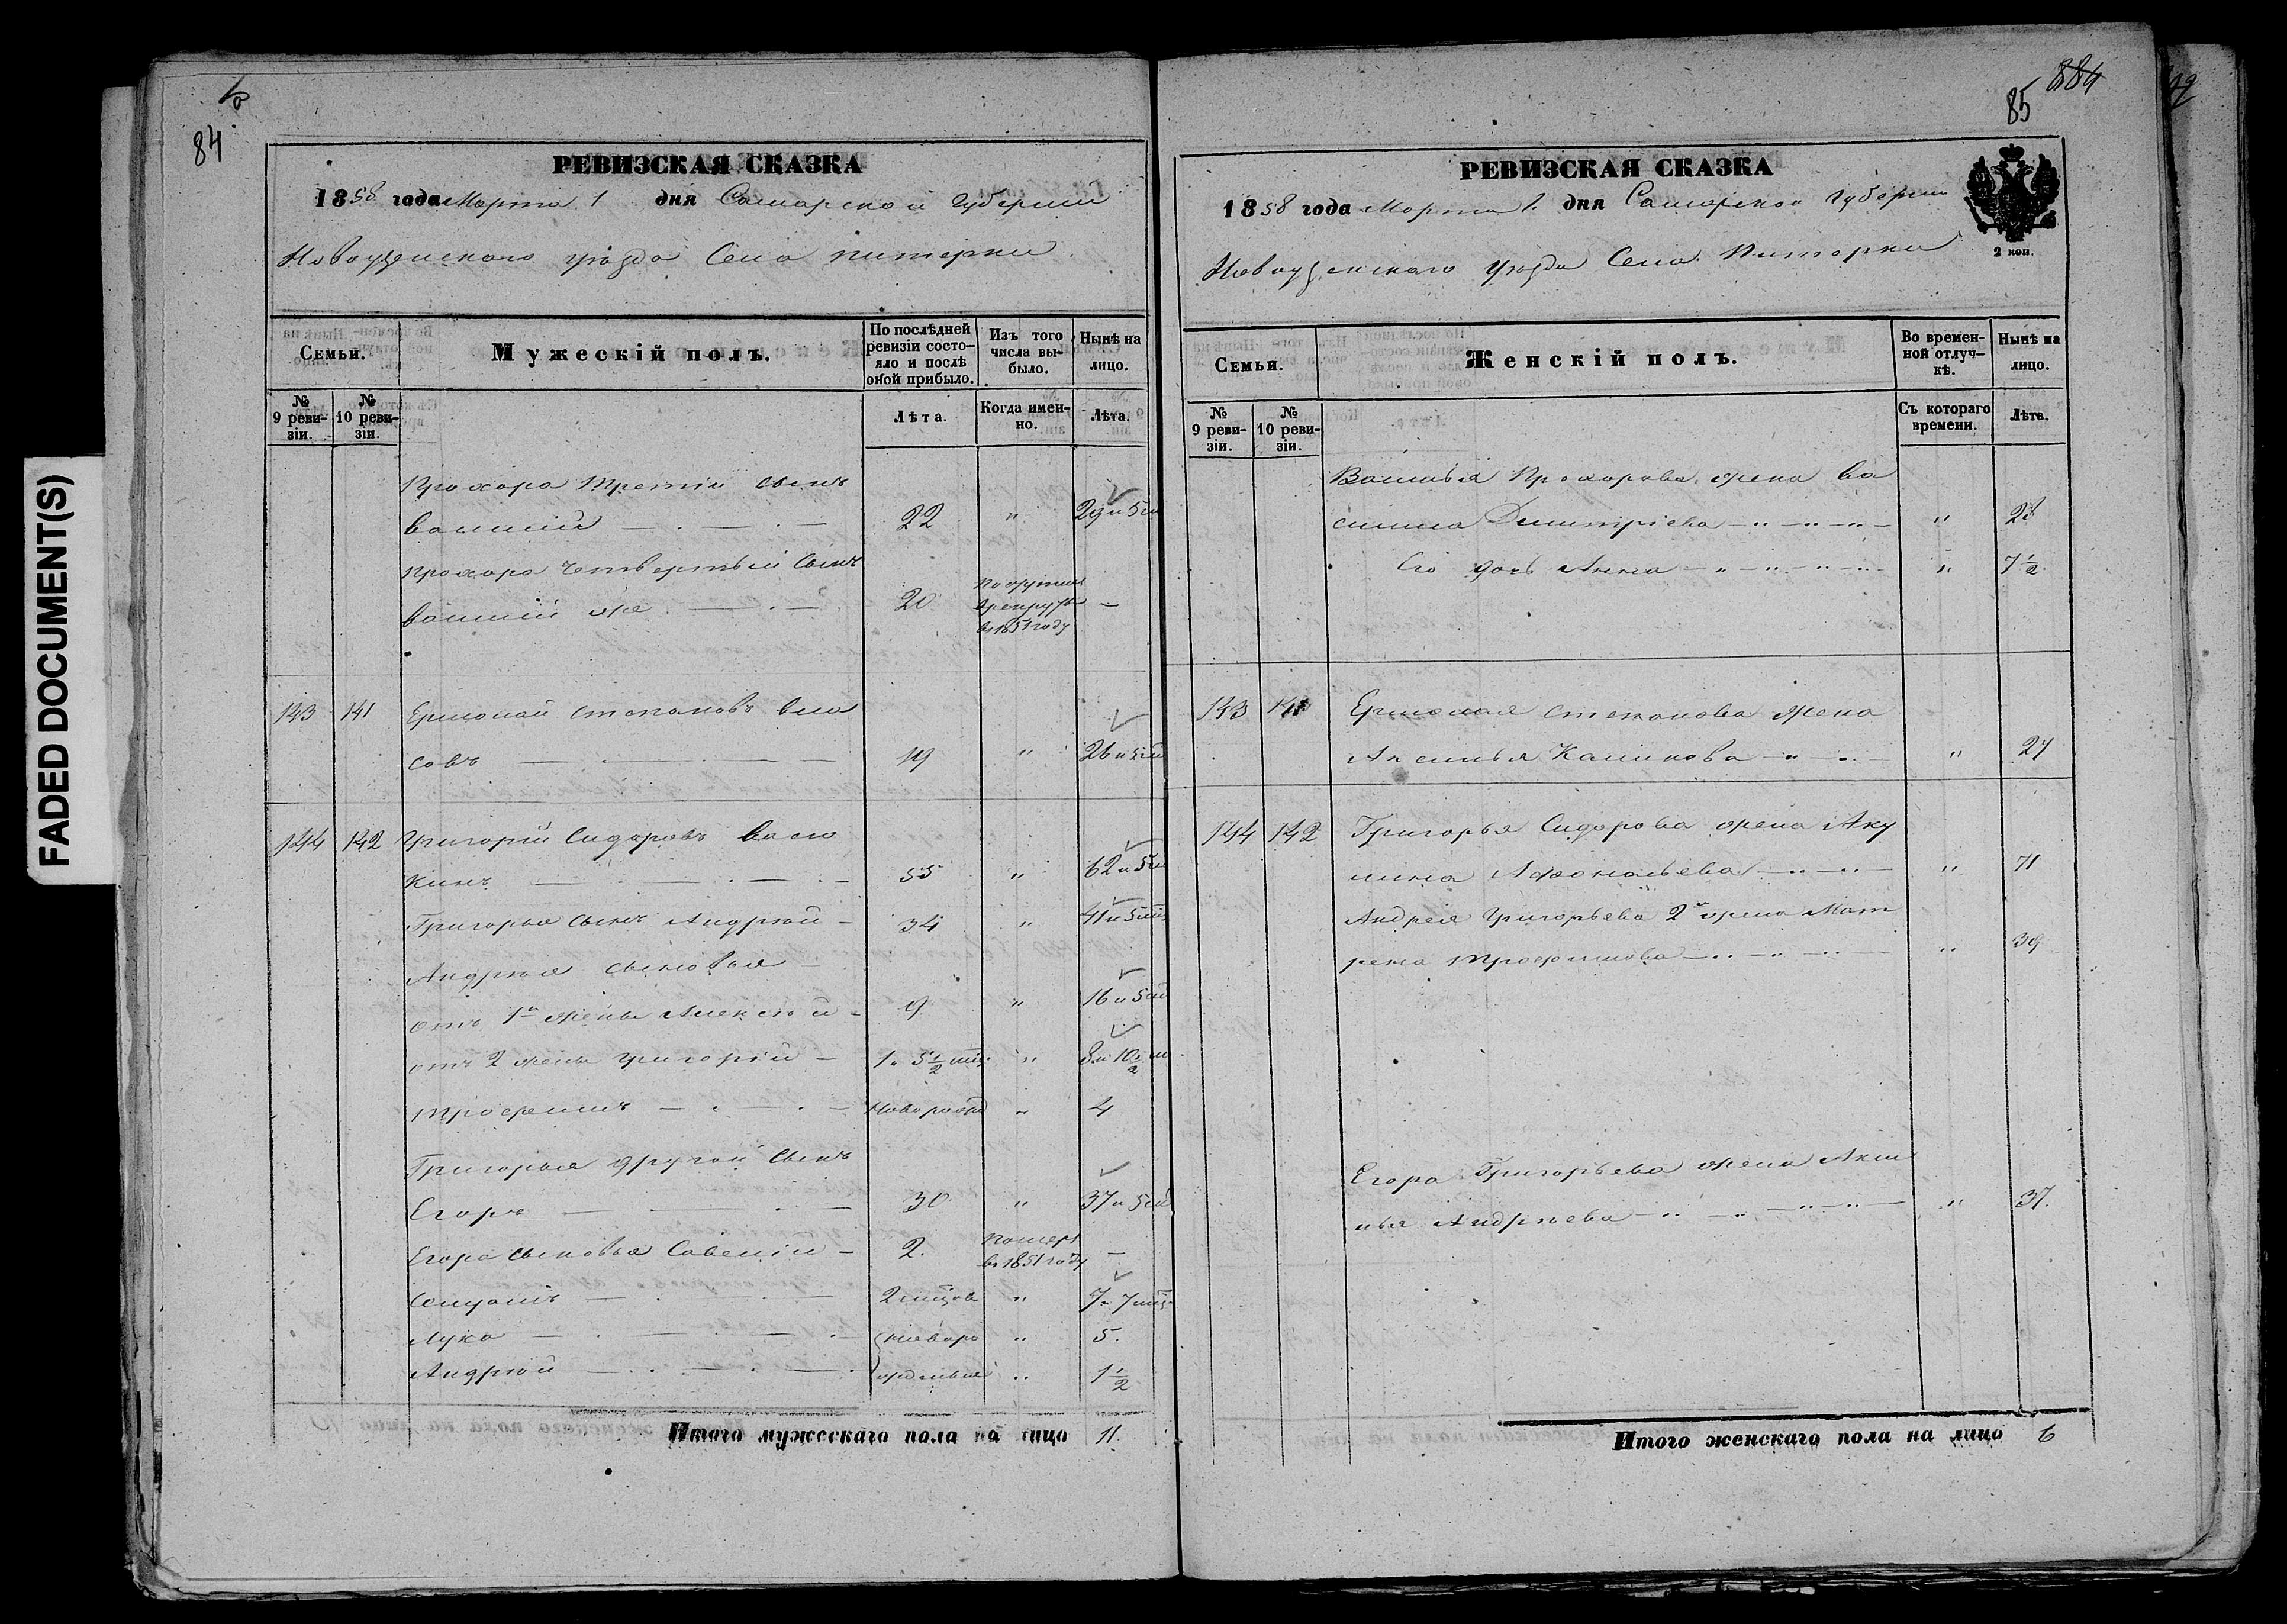 FADED DOCUMENT(S)
84
РЕВИЗСКАЯ СКАЗКА
1858 года Марта 1 дня Самарской губернии
Новоузенского уѣзда Села Питерки
Семьи.
Мужескій полъ.
По послѣдней ревизіи состо-
яло и послѣ оной прибыло.
Изъ того числа вы-
было.
Нынѣ на лицо.
№ 9 реви-
зіи.
№ 10 реви-
зіи.
Лѣта.
Когда имен-
но.
Лѣта.
Прохора третій сынъ
Василій 22 " 29 и 5 м
Прохора четвертый сынъ
Василій же 20 в рекруты в 1851 году —
143 141 Ермолай Степановъ Вла
совъ 19 " 26 и 5 м
144 142 Григорій Сидоровъ
кинъ 55 " 62 и 5 м
Григорья сынъ Андрей 34 " 41 и 5 м
Андрея сыновья
отъ 1й жены Алексѣй 9 " 16 и 5 м
отъ 2 жены Григорій 1. 5 1/2 мѣс " 8 и 10 1/2 м
Трофимъ новорожд " 4
Григорья другой сынъ
Егоръ 30 " 37 и 5 м
Егора сыновья Савелій 2. Померъ в 1851 году —
2 мѣсяц " 7. 7 мѣс
Лука новоро " 5.
Андрей жденные " 1 1/2
Итого мужескаго пола на лицо 11.
884
85
РЕВИЗСКАЯ СКАЗКА
1858 года Марта 1. дня Самарской губернии
Новоузенскаго уѣзда Села Питерки
2 коп.
Семьи.
Женскій полъ.
Во времен-
ной отлуч-
кѣ.
Нынѣ на
лицо.
№ 9 реви-
зіи.
№ 10 реви-
зіи.
Съ котораго
времени.
Лѣта.
Василья Прохорова жена Ва
силиса Димитріева " 28
Его дочь Анна " 7 1/2
143 141 Ермолая Степанова жена
Аксинья Калинова " 27
144 142 Григорья Сидорова жена Аку
лина Афонасьева " 71
Андрея Григорьева 2я жена Мат
рена Трофимова " 39
Егора Григорьева жена Акси
нья Андрѣева " 37.
Итого женскаго пола на лицо 6